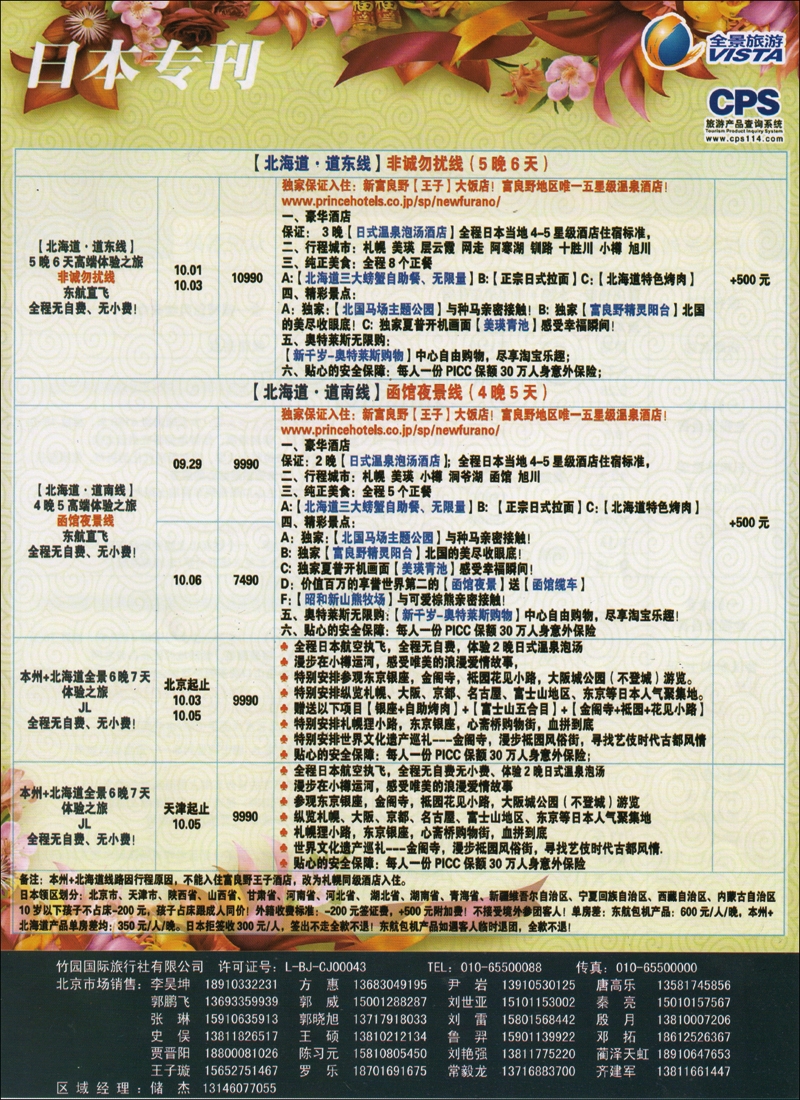 日本专刊
全景旅游
VISTA
CPS
旅游产品查询系统
Tourism Product Inquiry System
www.cps114.com
【北海道·道东线】非诚勿扰线（5晚6天）
【北海道·道东线】
5晚6天高端体验之旅
非诚勿扰线
东航直飞
全程无自费、无小费！
10.01
10.03
10990
独家保证入住：新富良野【王子】大饭店！富良野地区唯一五星级温泉酒店！
www.princehotels.co.jp/sp/newfurano/
一、豪华酒店
保证： 3晚【日式温泉泡汤酒店】全程日本当地4-5星级酒店住宿标准，
二、行程城市：札幌 美瑛 层云霞 网走 阿寒湖 钏路 十胜川 小樽 旭川
三、纯正美食：全程8个正餐
A:【北海道三大螃蟹自助餐、无限量】B:【正宗日式拉面】C:【北海道特色烤肉】
四、精彩景点：
A：独家：【北国马场主题公园】与种马亲密接触！B：独家【富良野精灵阳台】北国
的美尽收眼底！C：独家夏普开机画面【美瑛青池】感受幸福瞬间！
五、奥特莱斯无限购：
【新千岁-奥特莱斯购物】中心自由购物，尽享淘宝乐趣；
六、贴心的安全保障：每人一份PICC保额30万人身意外保险；
+500元
【北海道·道南线】函馆夜景线（4晚5天）
【北海道·道南线】
4晚5高端体验之旅
函馆夜景线
东航直飞
全程无自费、无小费！
09.29
9990
10.06
7490
独家保证入住：新富良野【王子】大饭店！富良野地区唯一五星级温泉酒店！
www.princehotels.co.jp/sp/newfurano/
一、豪华酒店
保证：2晚【日式温泉泡汤酒店】；全程日本当地4-5星级酒店住宿标准，
二、行程城市：札幌 美瑛 小樽 洞爷湖 函馆 旭川
三、纯正美食：全程5个正餐
A:【北海道三大螃蟹自助餐、无限量】B: 【正宗日式拉面】C:【北海道特色烤肉】
四、精彩景点：
A：独家：【北国马场主题公园】与种马亲密接触！
B：独家【富良野精灵阳台】北国的美尽收眼底！
C：独家夏普开机画面【美瑛青池】感受幸福瞬间！
D：价值百万的享誉世界第二的【函馆夜景】送【函馆缆车】
F:【昭和新山熊牧场】与可爱棕熊亲密接触！
五、奥特莱斯无限购：【新千岁-奥特莱斯购物】中心自由购物，尽享淘宝乐趣！
六、贴心的安全保障：每人一份PICC保额30万人身意外保险
+500元
本州+北海道全景6晚7天
体验之旅
JL
全程无自费、无小费！
北京起止
10.03
10.05
9990
全程日本航空执飞，全程无自费，体验2晚日式温泉泡汤
漫步在小樽运河，感受唯美的浪漫爱情故事，
特别安排参观东京银座，金阁寺，祗园花见小路，大阪城公园（不登城）游览。
特别安排纵览札幌、大阪、京都、名古屋、富士山地区、东京等日本人气聚集地。
赠送以下项目【银座+自助烤肉】+【富士山五合目】+【金阁寺+祗园+花见小路】
特别安排札幌狸小路，东京银座，心斋桥购物街，血拼到底
特别安排世界文化遗产巡礼---金阁寺，漫步祗园风俗街，寻找艺伎时代古都风情
贴心的安全保障：每人一份PICC保额30万人身意外保险；
本州+北海道全景6晚7天
体验之旅
JL
全程无自费、无小费！
天津起止
10.05
9990
全程日本航空执飞，全程无自费无小费、体验2晚日式温泉泡汤
漫步在小樽运河，感受唯美的浪漫爱情故事
参观东京银座，金阁寺，祗园花见小路，大阪城公园（不登城）游览
纵览札幌、大阪、京都、名古屋、富士山地区、东京等日本人气聚集地
札幌狸小路，东京银座，心斋桥购物街，血拼到底
世界文化遗产巡礼---金阁寺，漫步祗园风俗街，寻找艺伎时代古都风情.
贴心的安全保障：每人一份PICC保额30万人身意外保险
备注：本州+北海道线路因行程原因，不能入住富良野王子酒店，改为札幌同级酒店入住。
日本领区划分：北京市、天津市、陕西省、山西省、甘肃省、河南省、河北省、湖北省、湖南省、青海省、新疆维吾尔自治区、宁夏回族自治区、西藏自治区、内蒙古自治区
10岁以下孩子不占床-200元，孩子占床跟成人同价！外籍收费标准：-200元签证费，+500元附加费！不接受境外参团客人！单房差：东航包机产品：600元/人/晚，本州+
北海道产品单房差均：350元/人/晚。日本拒签收300元/人，签出不走全款不退！东航包机产品如遇客人临时退团，全款不退！
竹园国际旅行社有限公司 许可证号：L-BJ-CJ00043 TEL：010-65500088 传真：010-65500000
北京市场销售：李昊坤 18910332231 方 惠 13683049195 尹 岩 13910530125 唐高乐 13581745856
郭鹏飞 13693359939 郭 威 15001288287 刘世亚 15101153002 秦 亮 15010157567
张 琳 15910635913 郭晓旭 13717918033 刘 雷 15801568442 殷 月 13810007206
史 俣 13811826517 王 硕 13810212134 鲁 羿 15901139922 邓 拓 18612526367
贾晋阳 18800081026 陈习元 15810805450 刘艳强 13811775220 蔺泽天虹 18910647653
王子璇 15652751467 罗 乐 18701691675 常毅龙 13716883700 齐建军 13811661447
区域经理：储 杰 13146077055